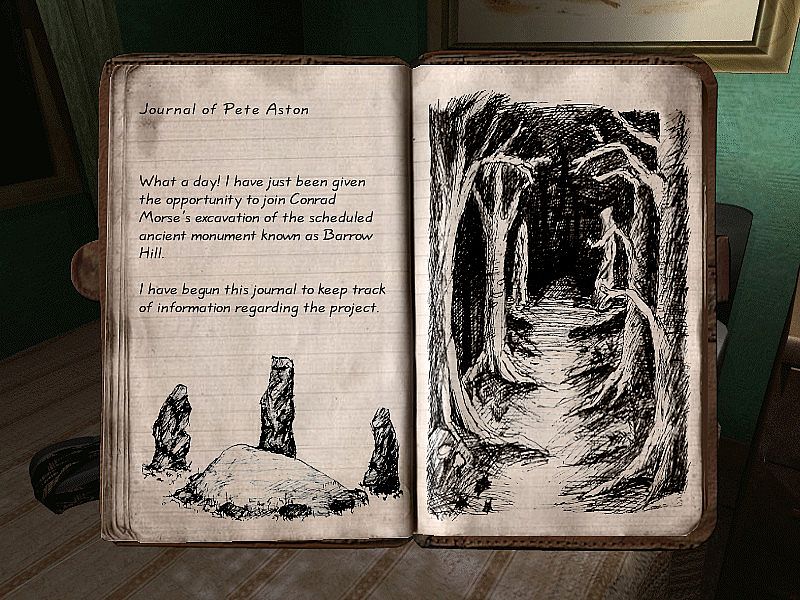 Journal of Pete Aston
What a day! I have just been given
the opportunity to join Conrad
Morse's excavation of the scheduled
ancient monument known as Barrow
Hill.
I have begun this journal to keep track
of information regarding the project.